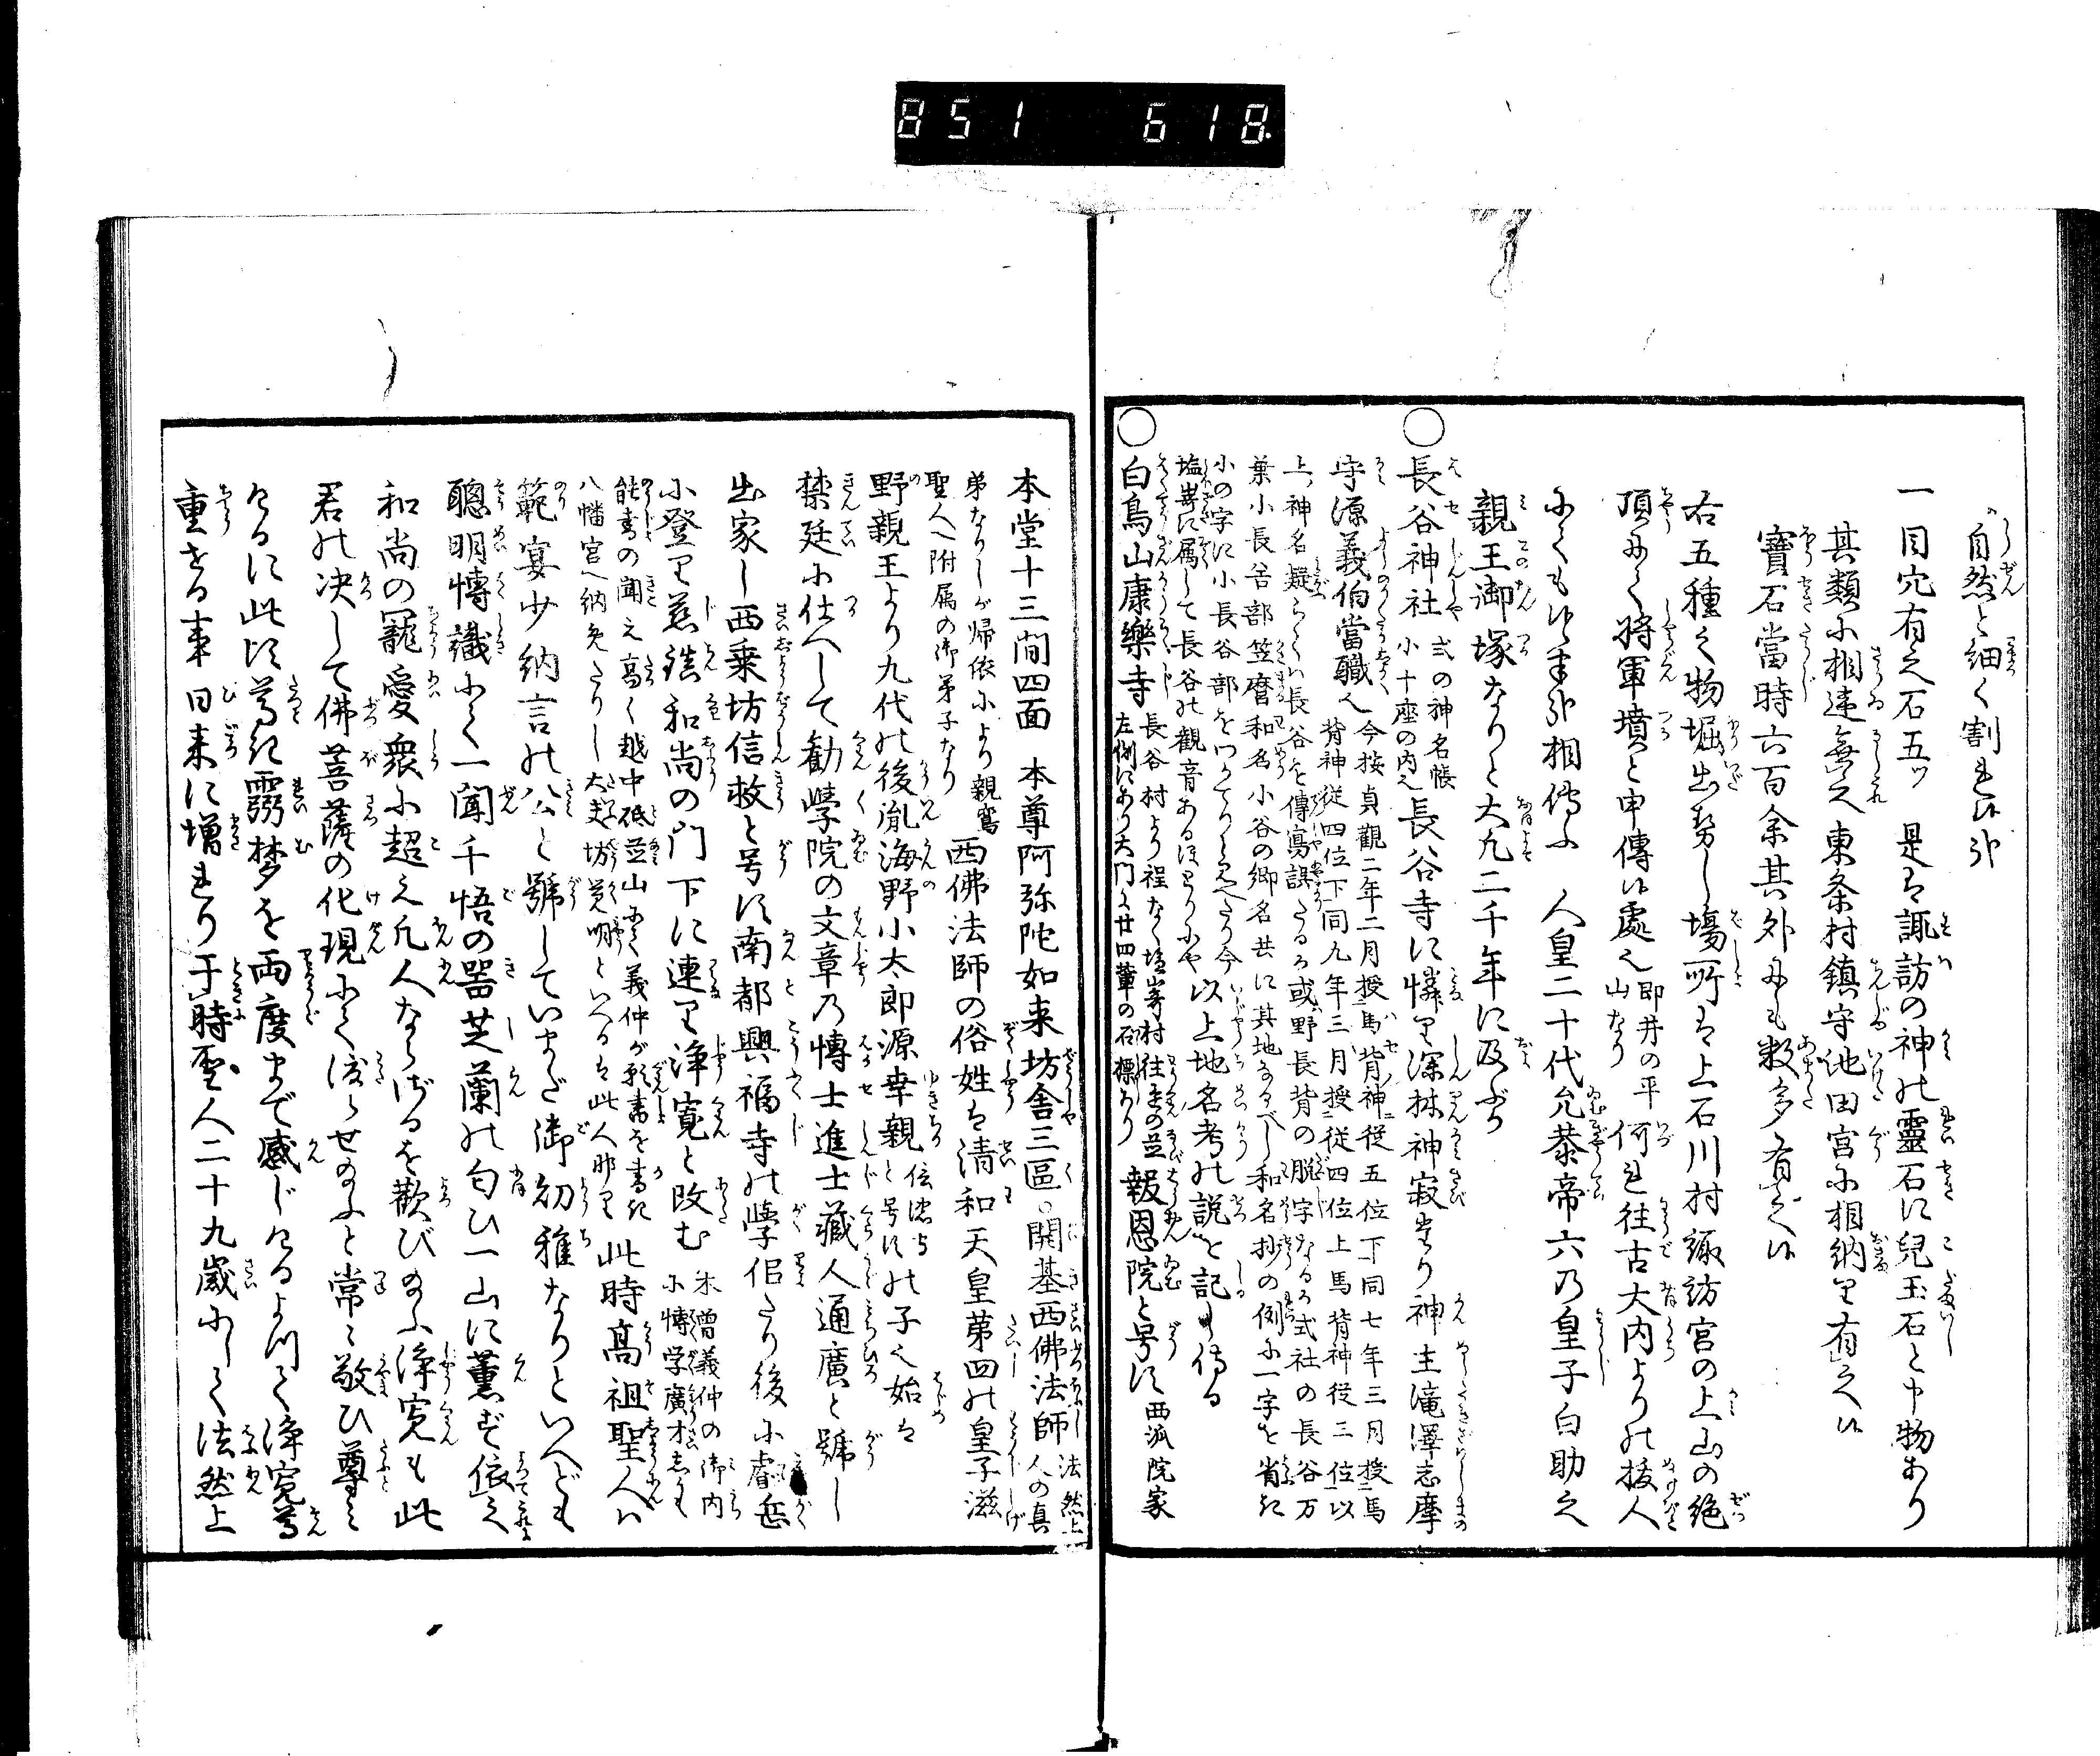 851 618
自然と細く割れ候
一目穴有之石五ッ 是は諏訪の神の靈石に兒玉石と申物あり
其類に相違無之東条村鎮守池田宮に相納り有之候
寶石當時六百余其外にも数多有之候
右五種之物堀出候し場所は上石川村諏訪宮の上山の絶
頂にて将軍墳と申傳候處也 即井の平山なり 何れ往古大内よりの拔人
にても候半歟相傳ふ 人皇二十代允恭帝六の皇子白助之
親王御塚なりと大凡二千年に及ぶ
○長谷神社 式の神名帳小十座の内也 長谷寺に隣り深林神寂たり神主滝澤志摩
守源義伯當職也 今按貞觀二年二月授馬背神従五位下同七年三月授馬
背神従四位下同九年三月授従四位上馬背神従三位以
上神名擬らくハ長谷を傳寫誤たる或野長背の脱字なる式社の長谷万
葉小長谷部笠麿和名小谷の郷名共に其地なるべし和名抄の例に一字を省き
小の字に小長谷部を
塩嵜に属して長谷の觀音あるほとりにや 以上地名考の説を記し侍る
○白鳥山康樂寺 長谷村より程なく塩嵜村往来の並左側にあり大門に廿四輩の石標あり 報恩院と号す 西派院家
本堂十三間四面 本尊阿弥陀如来坊舎三區 開基西佛法師 法然上人の真
弟なりしが帰依により親鸞聖人へ附属の御弟子なり 西佛法師の俗姓は清和天皇第四の皇子滋
野親王より九代の後胤海野小太郎源幸親 信濃守と号す の子也始は
禁廷に仕へして勧學院の文章乃博士進士藏人通廣と號し
出家し西乗坊信救と号す南都興福寺の學侶たり後に睿岳
に登り慈鎮和尚の門下に連り浄寛と改む 木曽義仲の御内に博学廣才
能書の聞え高く越中砥並山にて義仲が願書を書き
八幡宮へ納免たりし大夫坊覚明といへるは此人那り 此時高祖聖人ハ
範宴少納言の公と號していまだ御幼稚なりといへども
聰明博識にて一聞千悟の器芝蘭の匂ひ一山に薫ず依之
和尚の寵愛衆に超え凡人ならざるを歡びのふ浄寛も此
君の决して佛菩薩の化現にて渡らせのふと常に敬ひ尊み
けるに此頃尊き靈梦を両度まで感じけるよつて浄寛
重する事日来に増れり于時聖人二十九歳にして法然上